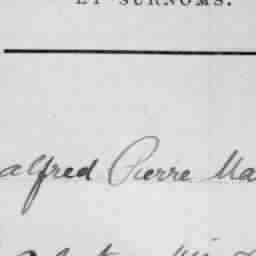 ET SURNOMS.
alfred Pierre Ma